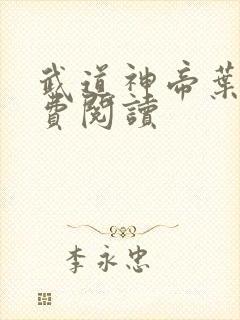 武道神帝葉
費閱讀
李永忠